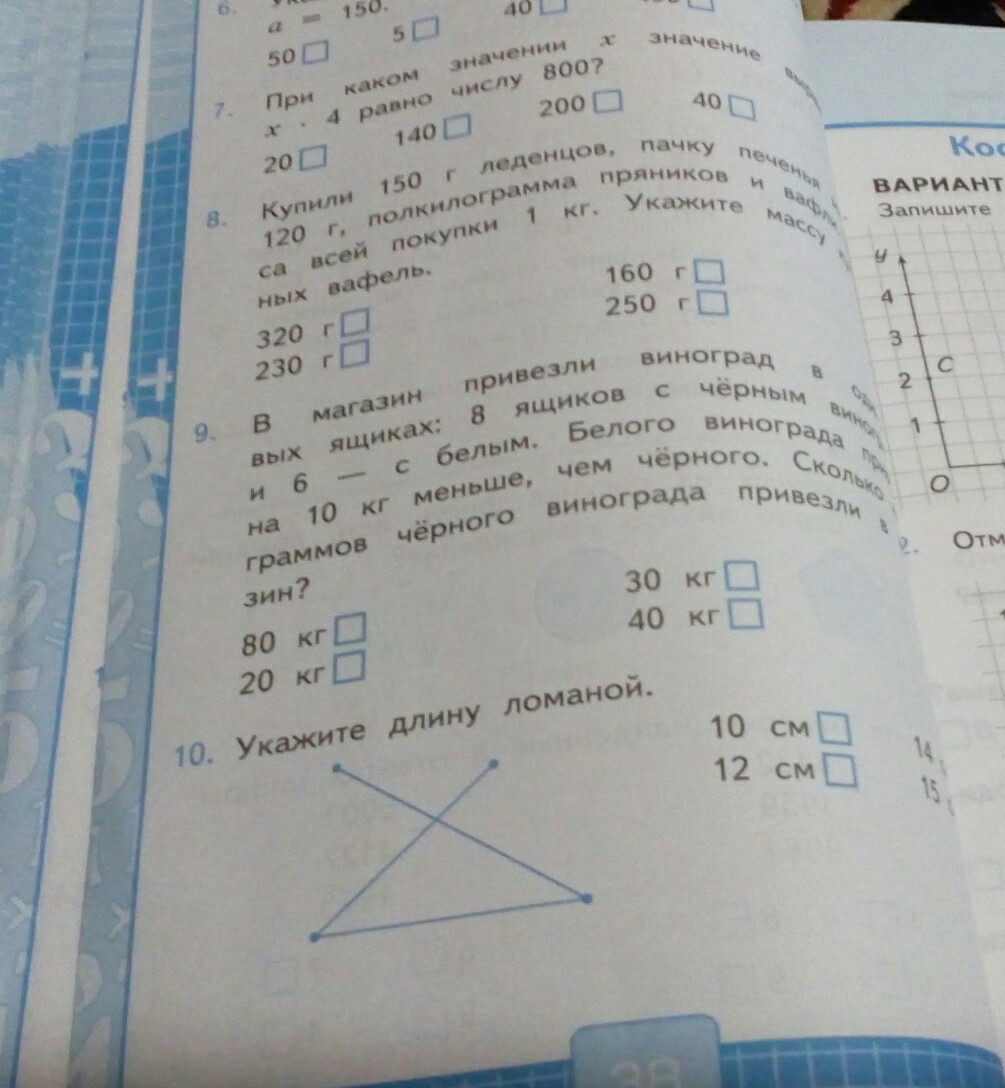 6.
a = 150.
50 5 40
7. При каком значении x значение
x · 4 равно числу 800?
20 140 200 40
8. Купили 150 г леденцов, пачку печенья
120 г, полкилограмма пряников и
са всей покупки 1 кг. Укажите массу
ных вафель.
320 г 160 г
230 г 250 г
9. В магазин привезли виноград в
вых ящиках: 8 ящиков с чёрным
и 6 — с белым. Белого винограда
на 10 кг меньше, чем чёрного. Сколько
граммов чёрного винограда привезли в
зин?
80 кг 30 кг
20 кг 40 кг
10. Укажите длину ломаной.
10 см
12 см
14
15
38
Коо
ВАРИАНТ
Запишите
y
4
3
2 C
1
O
2. Отм